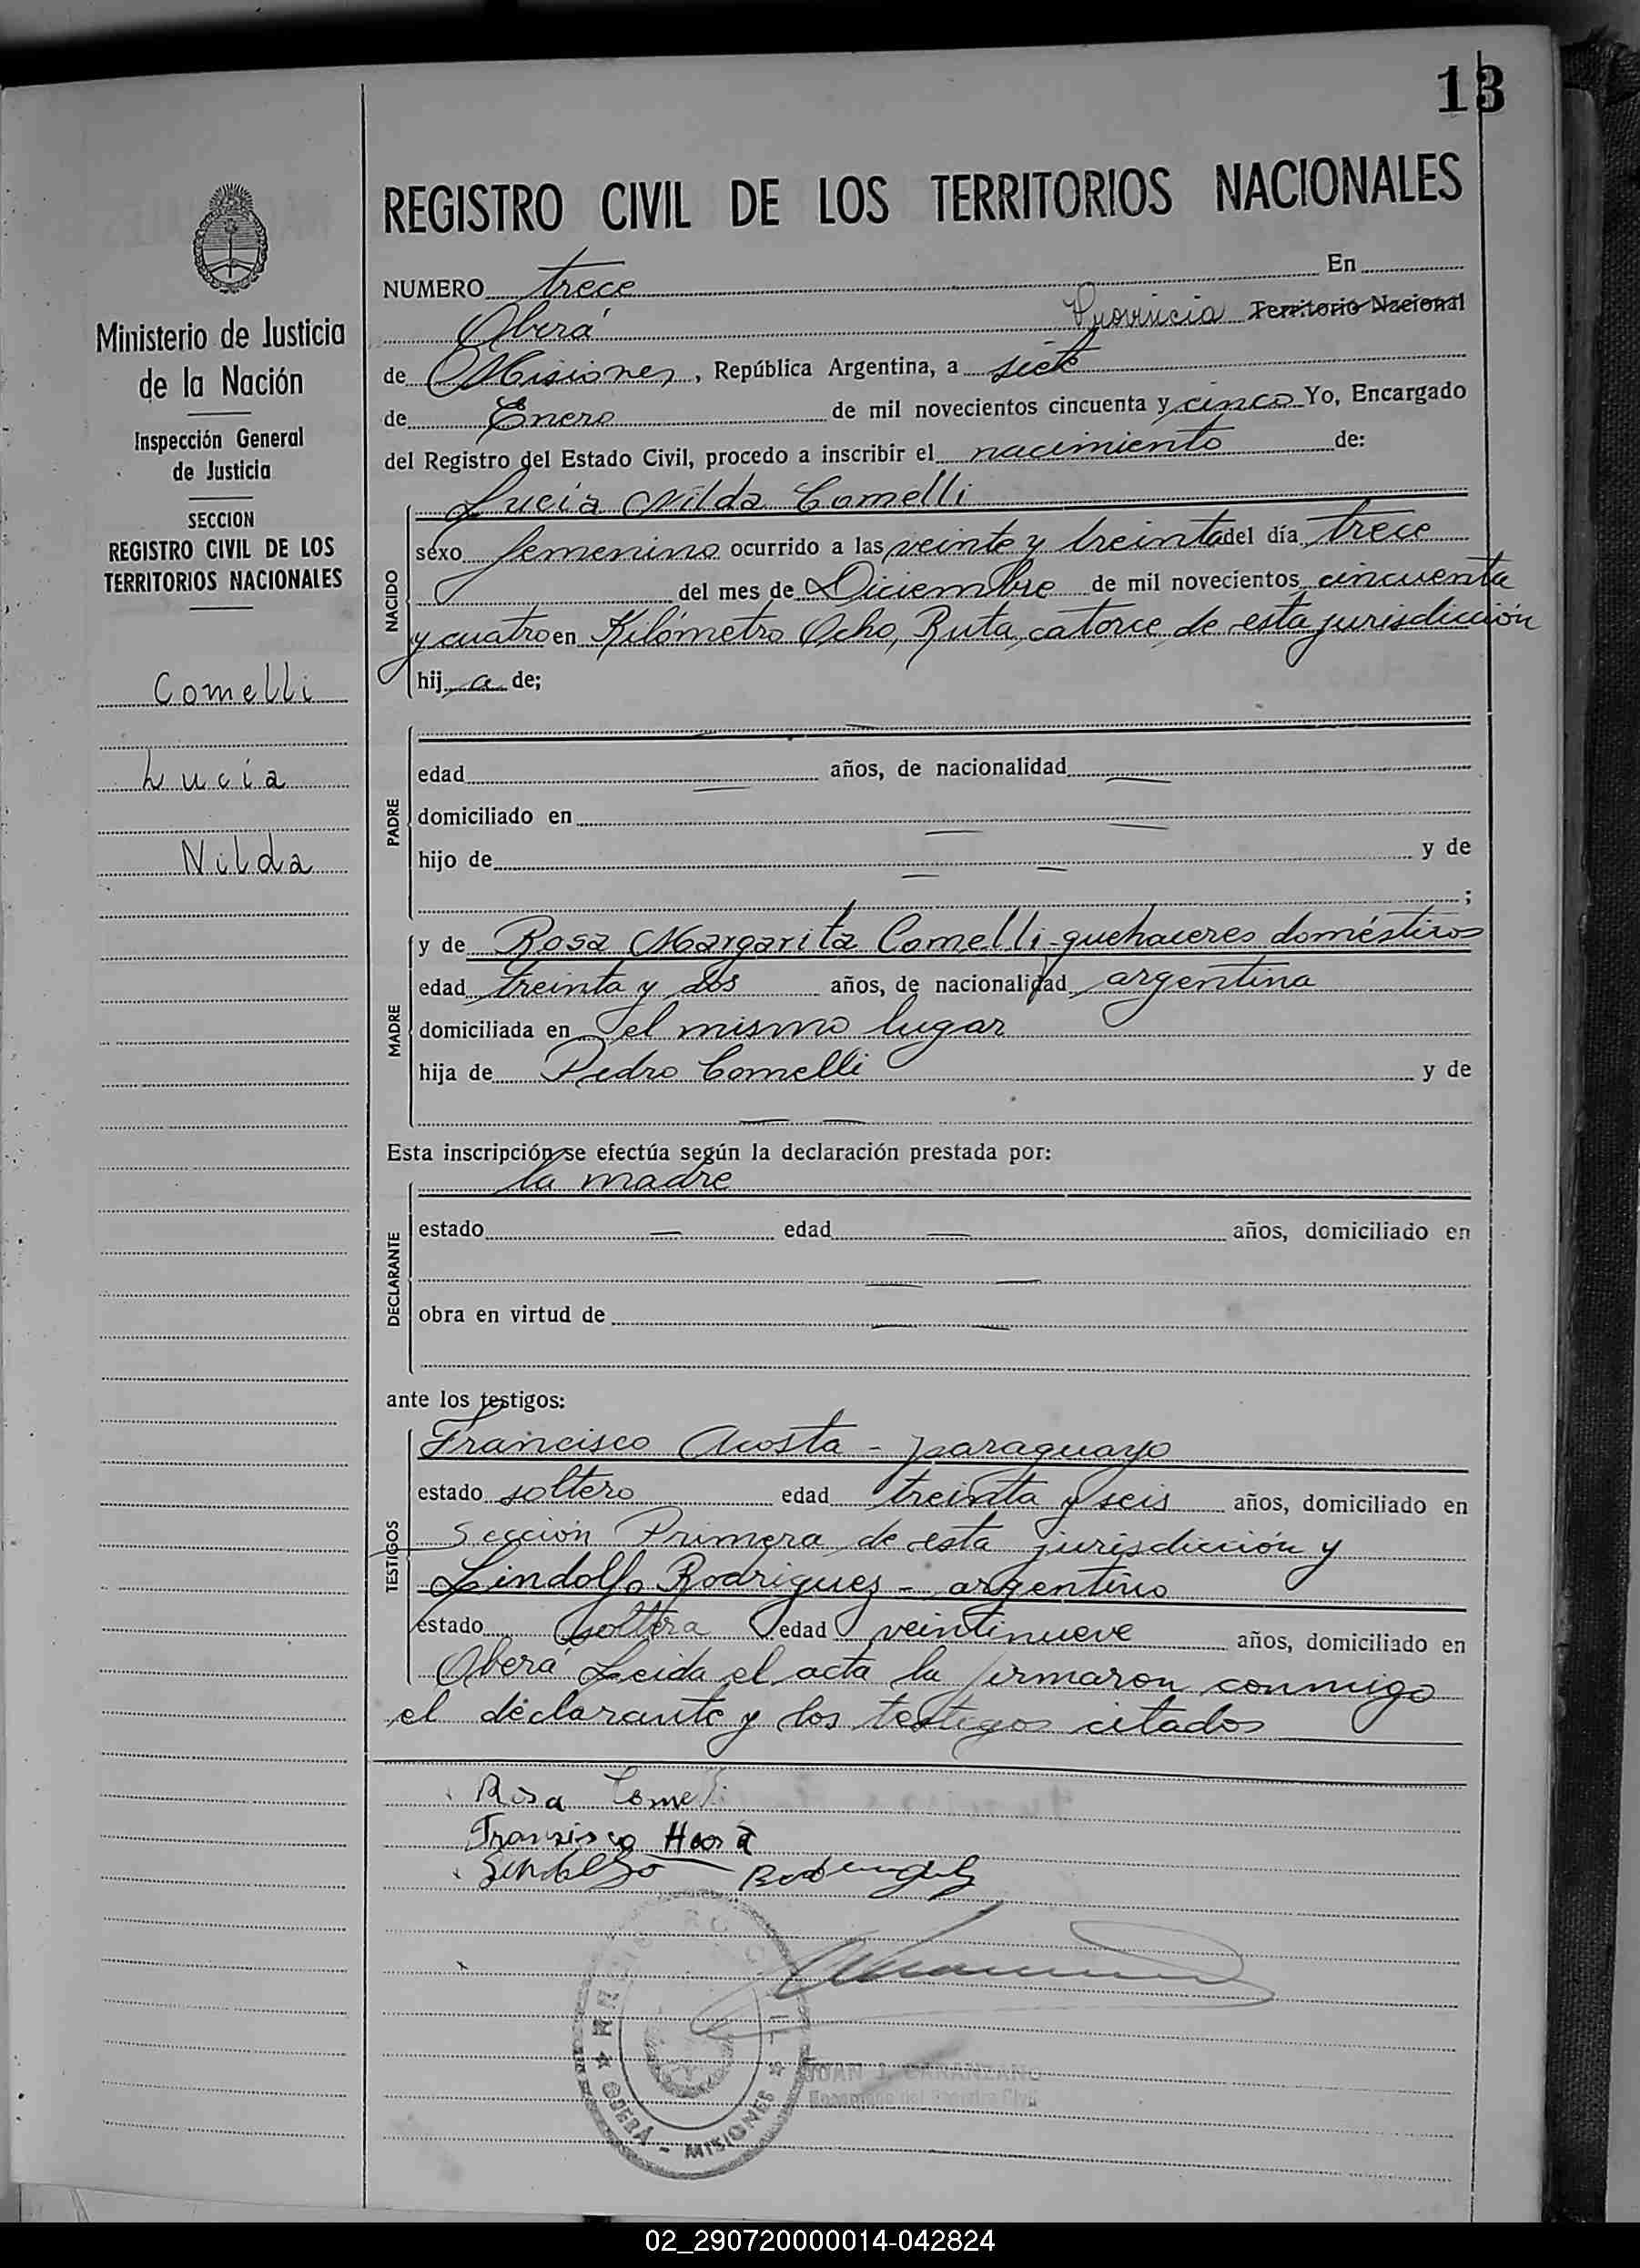 13
REGISTRO CIVIL DE LOS TERRITORIOS NACIONALES
Ministerio de Justicia
de la Nación
Inspección General
de Justicia
SECCION
REGISTRO CIVIL DE LOS
TERRITORIOS NACIONALES
Comelli
Lucía
Nilda
NUMERO trece En
Oberá Provincia Territorio Nacional
de Misiones, República Argentina, a siete
de Enero de mil novecientos cincuenta y cinco Yo, Encargado
del Registro del Estado Civil, procedo a inscribir el nacimiento de:
Lucía Nilda Comelli
NACIDO
sexo femenino ocurrido a las veinte y treinta del día trece
del mes de Diciembre de mil novecientos cincuenta
y cuatro en Kilómetro Ocho, Ruta catorce de esta jurisdicción
hij a de;
PADRE
edad años, de nacionalidad
domiciliado en
hijo de y de
;
MADRE
y de Rosa Margarita Comelli - quehaceres domésticos
edad treinta y dos años, de nacionalidad argentina
domiciliada en el mismo lugar
hija de Pedro Comelli y de
Esta inscripción se efectúa según la declaración prestada por:
la madre
DECLARANTE
estado edad años, domiciliado en
obra en virtud de
ante los testigos:
TESTIGOS
Francisco Acosta - paraguayo
estado soltero edad treinta y seis años, domiciliado en
Sección Primera de esta jurisdicción y
Lindolfo Rodriguez - argentino
estado soltera edad veintinueve años, domiciliado en
Oberá Leida el acta la firmaron conmigo
el declarante y los testigos citados
Rosa Comelli
OBERÁ - MISIONES
JUAN J.
Encargado del Registro Civil
02_290720000014-042824